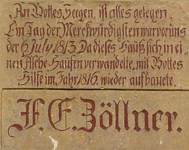 An Gottes Seegen, ist alles gelegen
Ein Tag der Merckwürdigsten war
der 6 July 1813 Da dieses Hauß sich in ei
nen Asche-Haufen verwandelte, mit Gottes
Hilfe im Jahr 1816. wieder aufbauete.
F. E. Zöllner.